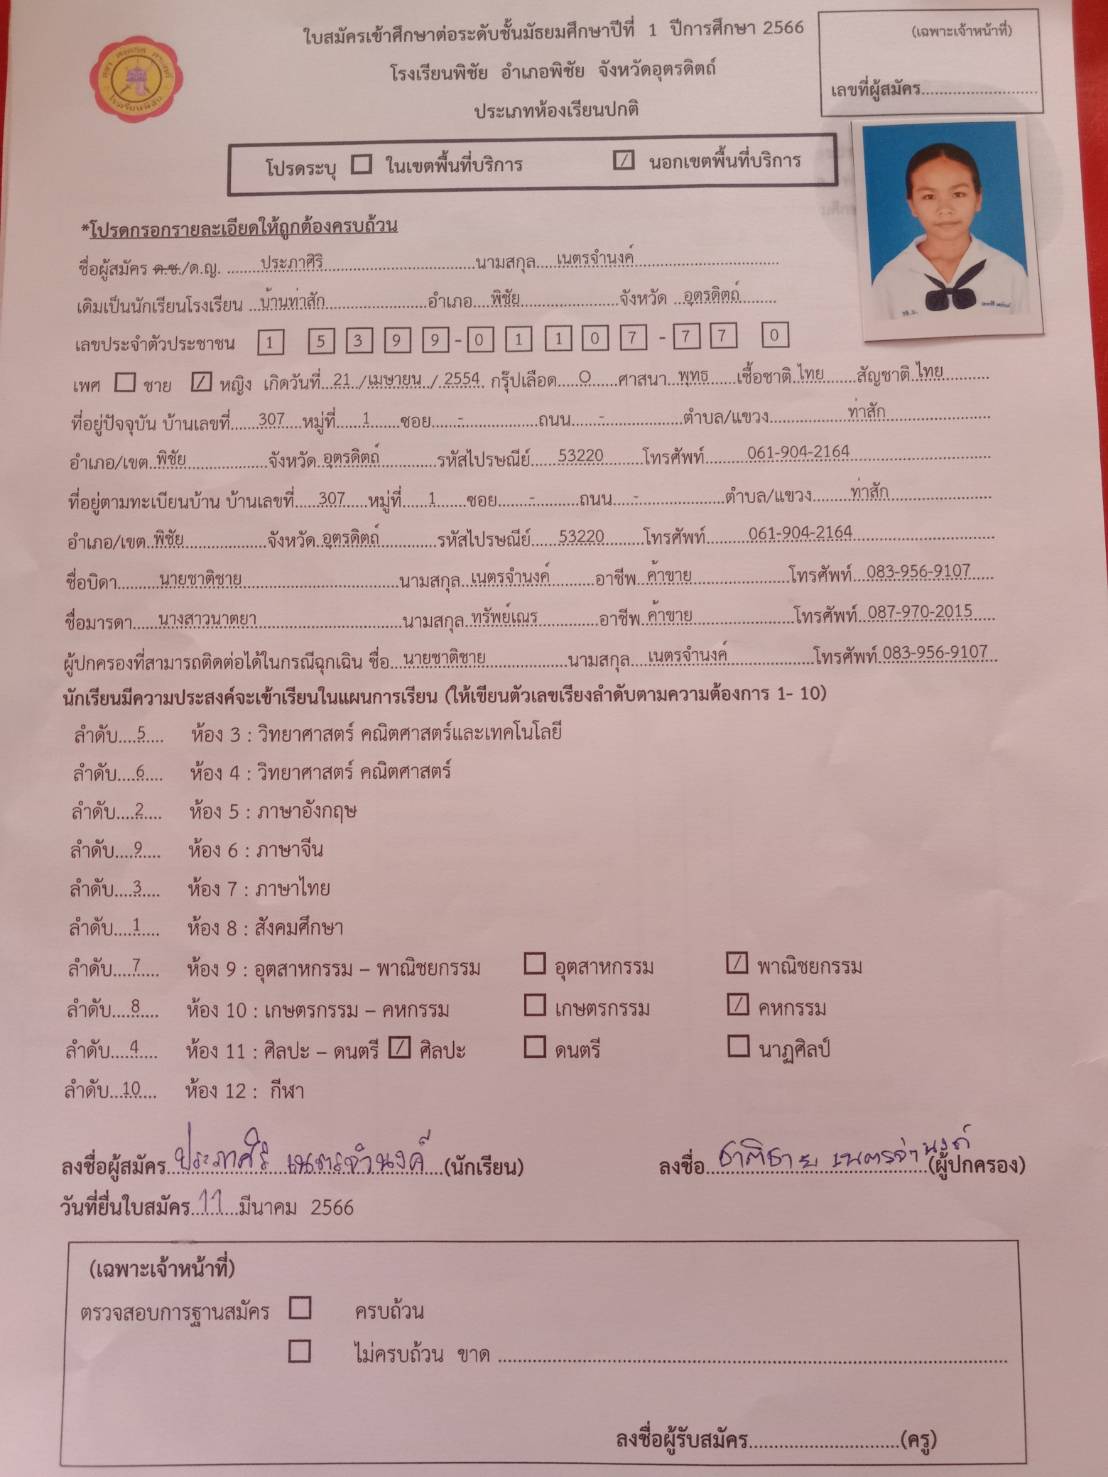 ใบสมัครเข้าศึกษาต่อระดับชั้นมัธยมศึกษาปีที่ 1 ปีการศึกษา 2566
(เฉพาะเจ้าหน้าที่)
โรงเรียนพิชัย อำเภอพิชัย จังหวัดอุตรดิตถ์
เลขที่ผู้สมัคร..............................
ประเภทห้องเรียนปกติ
โปรดระบุ ☐ ในเขตพื้นที่บริการ ☑ นอกเขตพื้นที่บริการ
*โปรดกรอกรายละเอียดให้ถูกต้องครบถ้วน
ชื่อผู้สมัคร ด.ช./ด.ญ. ........ประภาศิริ..............................นามสกุล....เนตรจำนงค์..............................
เดิมเป็นนักเรียนโรงเรียน ..บ้านท่าสัก....................อำเภอ....พิชัย....................จังหวัด ..อุตรดิตถ์........
เลขประจำตัวประชาชน 1 5 3 9 9 - 0 1 1 0 7 - 7 7 0
เพศ ☐ ชาย ☑ หญิง เกิดวันที่..21../เมษายน../..2554.. กรุ๊ปเลือด....O.....ศาสนา..พุทธ......เชื้อชาติ.ไทย.......สัญชาติ.ไทย..........
ที่อยู่ปัจจุบัน บ้านเลขที่......307....หมู่ที่......1......ซอย......-..............ถนน......-................ตำบล/แขวง................ท่าสัก......................
อำเภอ/เขต..พิชัย................จังหวัด.อุตรดิตถ์............รหัสไปรษณีย์......53220........โทรศัพท์.........061-904-2164..............................
ที่อยู่ตามทะเบียนบ้าน บ้านเลขที่.....307.....หมู่ที่.....1......ซอย.......-.........ถนน....-..................ตำบล/แขวง........ท่าสัก......................
อำเภอ/เขต..พิชัย................จังหวัด.อุตรดิตถ์............รหัสไปรษณีย์......53220........โทรศัพท์.........061-904-2164..............................
ชื่อบิดา.........นายชาติชาย..............................นามสกุล..เนตรจำนงค์.........อาชีพ..ค้าขาย....................โทรศัพท์...083-956-9107.....
ชื่อมารดา......นางสาวนาตยา..............................นามสกุล.ทรัพย์เณร............อาชีพ.ค้าขาย....................โทรศัพท์..087-970-2015.....
ผู้ปกครองที่สามารถติดต่อได้ในกรณีฉุกเฉิน ชื่อ...นายชาติชาย................นามสกุล....เนตรจำนงค์................โทรศัพท์.083-956-9107..
นักเรียนมีความประสงค์จะเข้าเรียนในแผนการเรียน (ให้เขียนตัวเลขเรียงลำดับตามความต้องการ 1- 10)
ลำดับ....5.... ห้อง 3 : วิทยาศาสตร์ คณิตศาสตร์และเทคโนโลยี
ลำดับ....6.... ห้อง 4 : วิทยาศาสตร์ คณิตศาสตร์
ลำดับ....2.... ห้อง 5 : ภาษาอังกฤษ
ลำดับ....9.... ห้อง 6 : ภาษาจีน
ลำดับ....3.... ห้อง 7 : ภาษาไทย
ลำดับ....1.... ห้อง 8 : สังคมศึกษา
ลำดับ....7.... ห้อง 9 : อุตสาหกรรม – พาณิชยกรรม ☐ อุตสาหกรรม ☑ พาณิชยกรรม
ลำดับ....8.... ห้อง 10 : เกษตรกรรม – คหกรรม ☐ เกษตรกรรม ☑ คหกรรม
ลำดับ....4.... ห้อง 11 : ศิลปะ – ดนตรี ☑ ศิลปะ ☐ ดนตรี ☐ นาฏศิลป์
ลำดับ...10.... ห้อง 12 : กีฬา
ลงชื่อผู้สมัคร..ประภาศิริ เนตรจำนงค์...(นักเรียน) ลงชื่อ..ชาติชาย เนตรจำนงค์(ผู้ปกครอง)
วันที่ยื่นใบสมัคร..11....มีนาคม 2566
(เฉพาะเจ้าหน้าที่)
ตรวจสอบการฐานสมัคร ☐ ครบถ้วน
☐ ไม่ครบถ้วน ขาด ..............................................................................
ลงชื่อผู้รับสมัคร..............................(ครู)